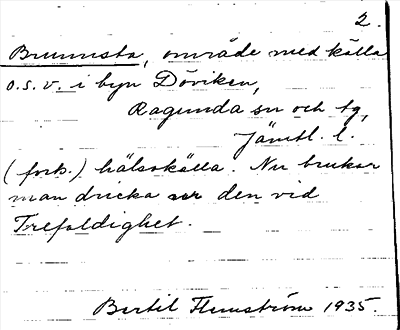 2.
Brunnsta, område med källa
o.s.v. i byn Döviken,
Ragunda sn och tg,
Jämtl. l.
(fork.) hälsokälla. Nu brukar
man dricka ur den vid
Trefaldighet.
Bertil Flemström 1935.